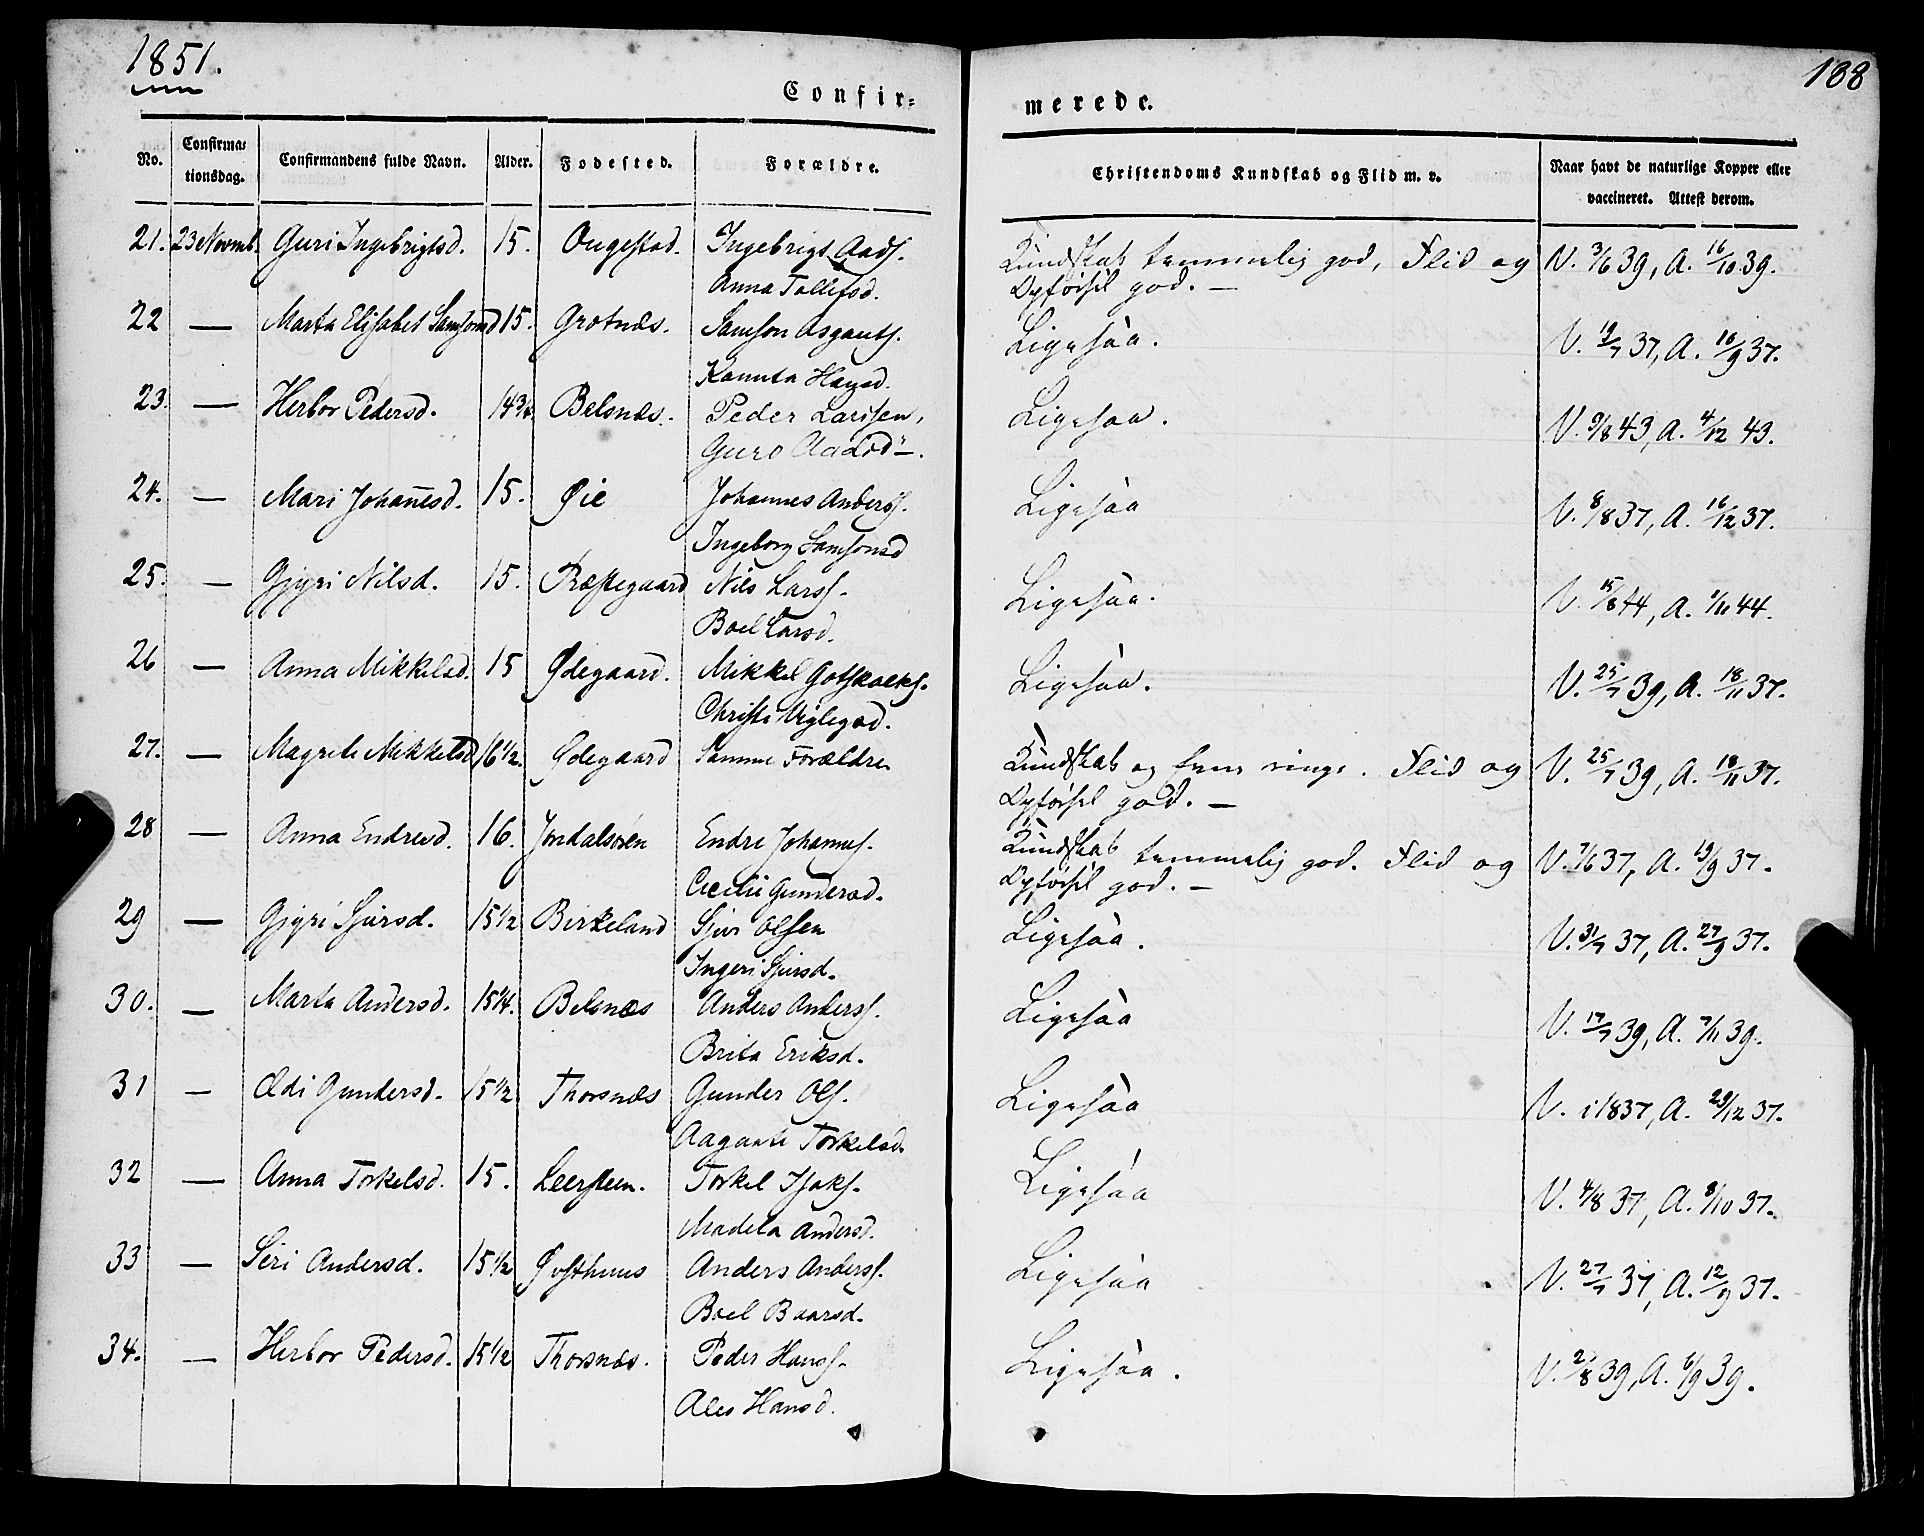 1851.
188
Confir=
merede.
No. Confirmationsdag. Confirmandens fulde Navn. Alder. Fødested. Forældre. Christendoms Kundskab og Flid m. v. Naar havt de naturlige Kopper eller vaccineret. Attest derom.
21. 23 Novmb. Guri Ingebrigtsd. 15. Ougestad. Ingebrigt Aads. Kundskab temmelig god, Flid og V. 3/6 39, A. 16/10 39.
Anna Tollefsd. Opførsel god. —
22 — Marta Elisabet Samsonsd 15. Grotnæs. Samson Asgauts. Ligesaa. V. 19/7 37, A. 16/9 37.
Kannta Hansd.
23. — Herbor Pedersd. 14 3/4. Belsnæs. Peder Larssen, Ligesaa. V. 9/8 43, A. 4/12 43.
Guro Aadsdr.
24. — Mari Johannesd. 15. Øie Johannes Anderss. Ligesaa V. 8/8 37, A. 16/12 37.
Ingeborg Samsonsd
25. — Gjyri Nilsd. 15. Præstegaard Nils Larss. Ligesaa. V. 15/8 44, A. 1/11 44.
Boel Larsd.
26 — Anna Mikkelsd. 15 Ødegaard. Mikkel Gotskalks. Ligesaa. V. 25/7 39, A. 18/11 37.
Christi Viglegsd.
27. — Magrete Mikkelsd 16 1/2. Ødegaard Samme Forældre Kundskab og Evne ringe. Flid og V. 25/7 39, A. 18/11 37.
Opførsel god. —
28 — Anna Endresd. 16. Jondalsøren Endre Johanness. Kundskab temmelig god. Flid og V. 7/6 37, A. 19/9 37.
Cecilie Gundersd. Opførsel god. —
29 — Gjyri Sjursd. 15 1/2 Birkeland Sjur Olsen Ligesaa. V. 31/7 37, A. 27/9 37.
Ingeri Sjursd.
30. — Marta Andersd. 15 1/4. Belsnæs Anders Anderss. Ligesaa V. 17/7 39, A. 7/11 39.
Brita Eriksd.
31 — Ædi Gundersd. 15 1/2 Thorsnæs Gunder Ols. Ligesaa V. i 1837, A. 29/12 37.
Aagaate Torkelsd.
32 — Anna Torkelsd. 15. Leersteen. Torkel Isaks. Ligesaa V. 4/8 37, A. 8/10 37.
Madela Andersd.
33 — Siri Andersd. 15 1/2 Øvsthuus Anders Anderss. Ligesaa V. 27/7 37, A. 12/9 37.
Boel Baarsd.
34. — Herbor Pedersd. 15 1/2 Thorsnæs. Peder Hanss. Ligesaa. V. 2/8 39, A. 6/9 39.
Ales Hansd.